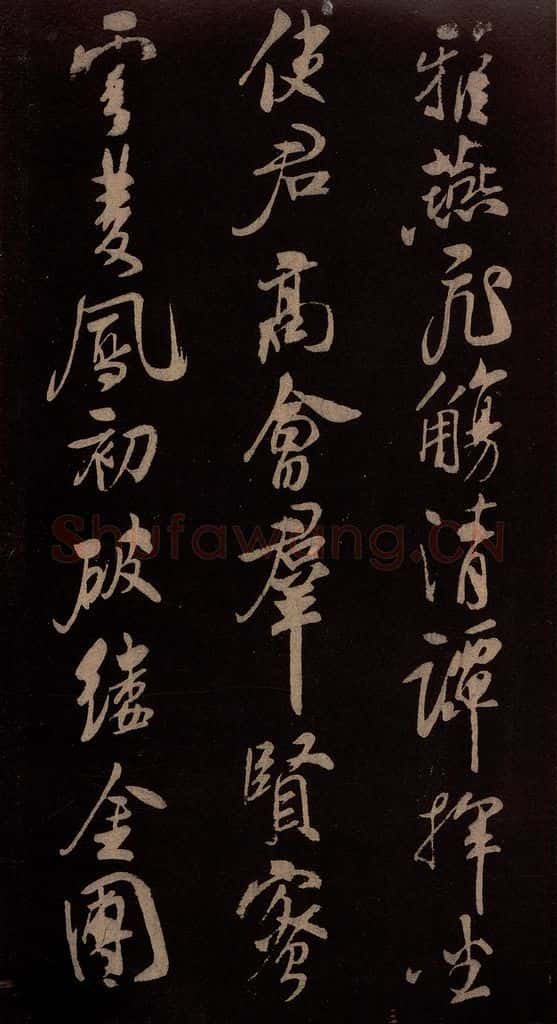 雅燕飛觴清譚揮坐
使君高會羣賢蜜
雲雙鳳初破縷金團
Shufawang.CN